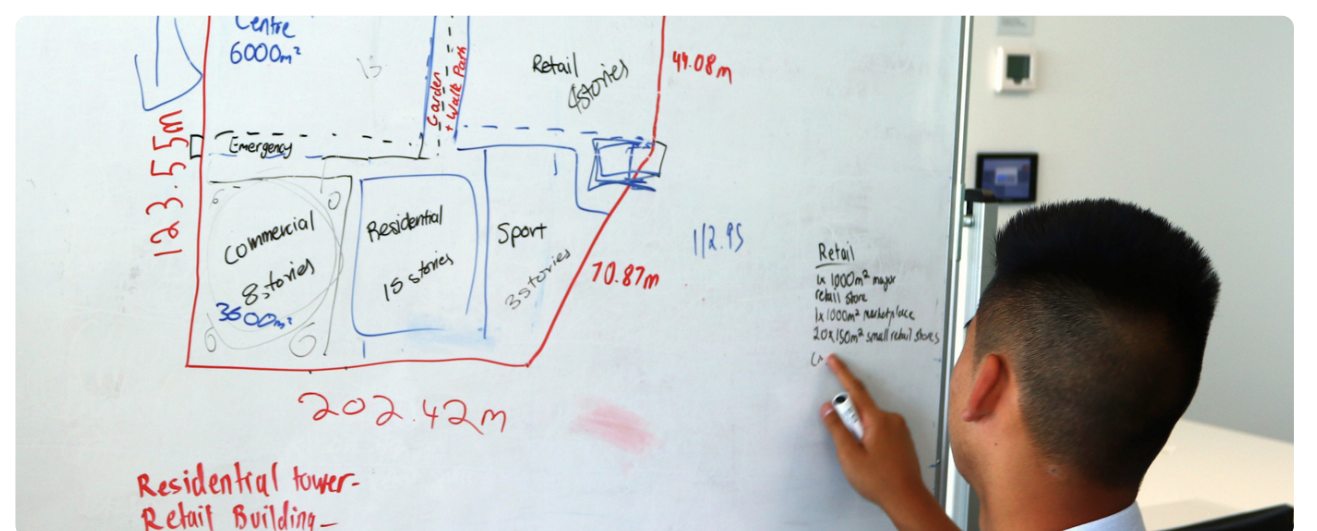 Centre
6000m²
Garden
+ Walk Park
Retail
4 stories
44.08m
123.55m
Emergency
Commercial
8 stories
3600m²
Residential
15 stories
Sport
3 stories
70.87m
112.95
202.42m
Retail
1x 1000m² major
retail store
1x 1000m² marketplace
20x 150m² small retail stores
Residential tower-
Retail Building-